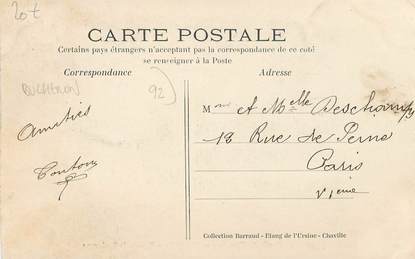 20t
CARTE POSTALE
Certains pays étrangers n'acceptant pas la correspondance de ce coté
se renseigner à la Poste
Correspondance
Adresse
BUCHERON
92
Mme et Melle Deschamps
Amitiés
18 Rue de
Paris
Tonton
VIeme
Collection Barraud - Etang de l'Ursine - Chaville